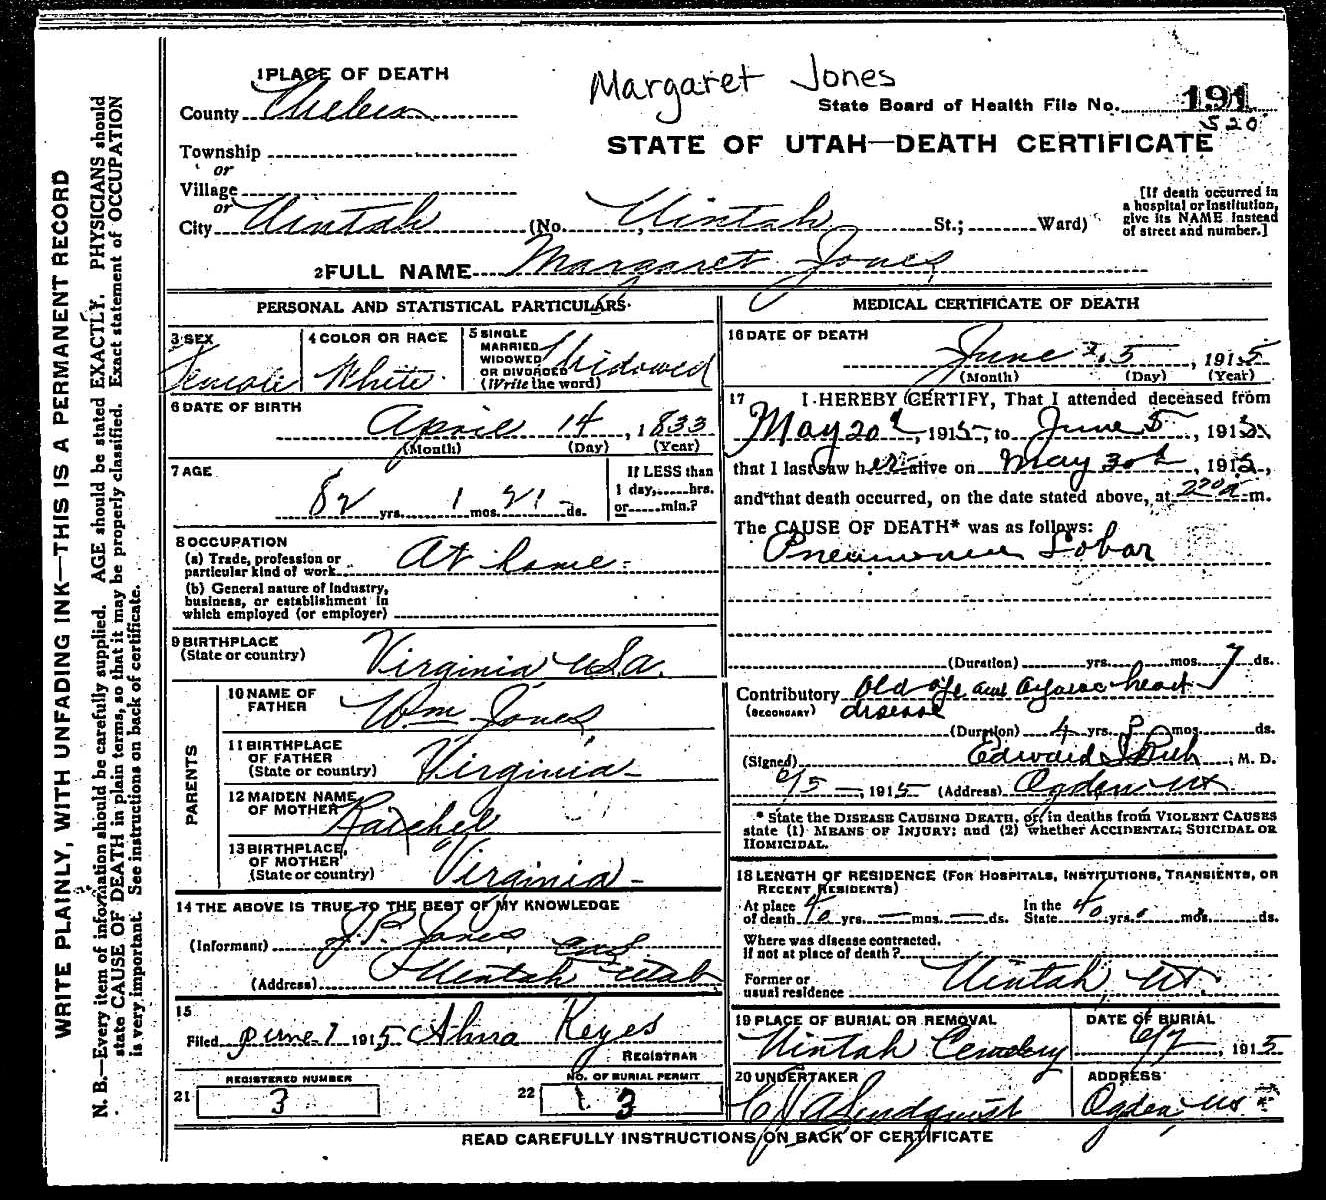 Margaret Jones
1 PLACE OF DEATH
County
State Board of Health File No. 191
520
STATE OF UTAH—DEATH CERTIFICATE
Township
or
Village
or
City Uintah (No. , Uintah St.; Ward)
[If death occurred in
a hospital or institution,
give its NAME instead
of street and number.]
2 FULL NAME Margaret Jones
PERSONAL AND STATISTICAL PARTICULARS
3 SEX
Female
4 COLOR OR RACE
White
5 SINGLE
MARRIED
WIDOWED
OR DIVORCED
(Write the word)
Widowed
6 DATE OF BIRTH
April 14, 1833
(Month) (Day) (Year)
7 AGE
82 yrs. 1 mos. 21 ds.
If LESS than
1 day, hrs.
or min.?
8 OCCUPATION
(a) Trade, profession or
particular kind of work At home
(b) General nature of Industry,
business, or establishment in
which employed (or employer)
9 BIRTHPLACE
(State or country) Virginia USA.
PARENTS
10 NAME OF
FATHER Wm Jones
11 BIRTHPLACE
OF FATHER
(State or country) Virginia
12 MAIDEN NAME
OF MOTHER Ratchel
13 BIRTHPLACE
OF MOTHER
(State or country) Virginia
14 THE ABOVE IS TRUE TO THE BEST OF MY KNOWLEDGE
(Informant) J.P. Jones
(Address) Uintah Utah
15
Filed June 7 1915 Alma Keyes
REGISTRAR
21 REGISTERED NUMBER
3
22 NO. OF BURIAL PERMIT
3
MEDICAL CERTIFICATE OF DEATH
16 DATE OF DEATH
June 5, 1915
(Month) (Day) (Year)
17 I HEREBY CERTIFY, That I attended deceased from
May 20, 1915, to June 5, 1915
that I last saw her alive on May 30th, 1915,
and that death occurred, on the date stated above, at m.
The CAUSE OF DEATH* was as follows:
Pneumonia Lobar
(Duration) yrs. mos. 7 ds.
Contributory Old age and heart
(SECONDARY) disease
(Duration) 4 yrs. mos. ds.
(Signed) Edward I Rich, M. D.
6/5, 1915 (Address) Ogden Ut
* State the DISEASE CAUSING DEATH, or, in deaths from VIOLENT CAUSES
state (1) MEANS OF INJURY; and (2) whether ACCIDENTAL, SUICIDAL OR
HOMICIDAL.
18 LENGTH OF RESIDENCE (FOR HOSPITALS, INSTITUTIONS, TRANSIENTS, OR
RECENT RESIDENTS)
At place
of death 40 yrs. — mos. — ds. In the
State 40 yrs. mos. ds.
Where was disease contracted,
If not at place of death?
Former or
usual residence Uintah, Ut.
19 PLACE OF BURIAL OR REMOVAL
Uintah Cemetery
DATE OF BURIAL
6/7, 1915
20 UNDERTAKER
Lindquist
ADDRESS
Ogden Ut
READ CAREFULLY INSTRUCTIONS ON BACK OF CERTIFICATE
WRITE PLAINLY, WITH UNFADING INK—THIS IS A PERMANENT RECORD
N. B.—Every item of information should be carefully supplied. AGE should be stated EXACTLY. PHYSICIANS should
state CAUSE OF DEATH in plain terms, so that it may be properly classified. Exact statement of OCCUPATION
is very important. See instructions on back of certificate.